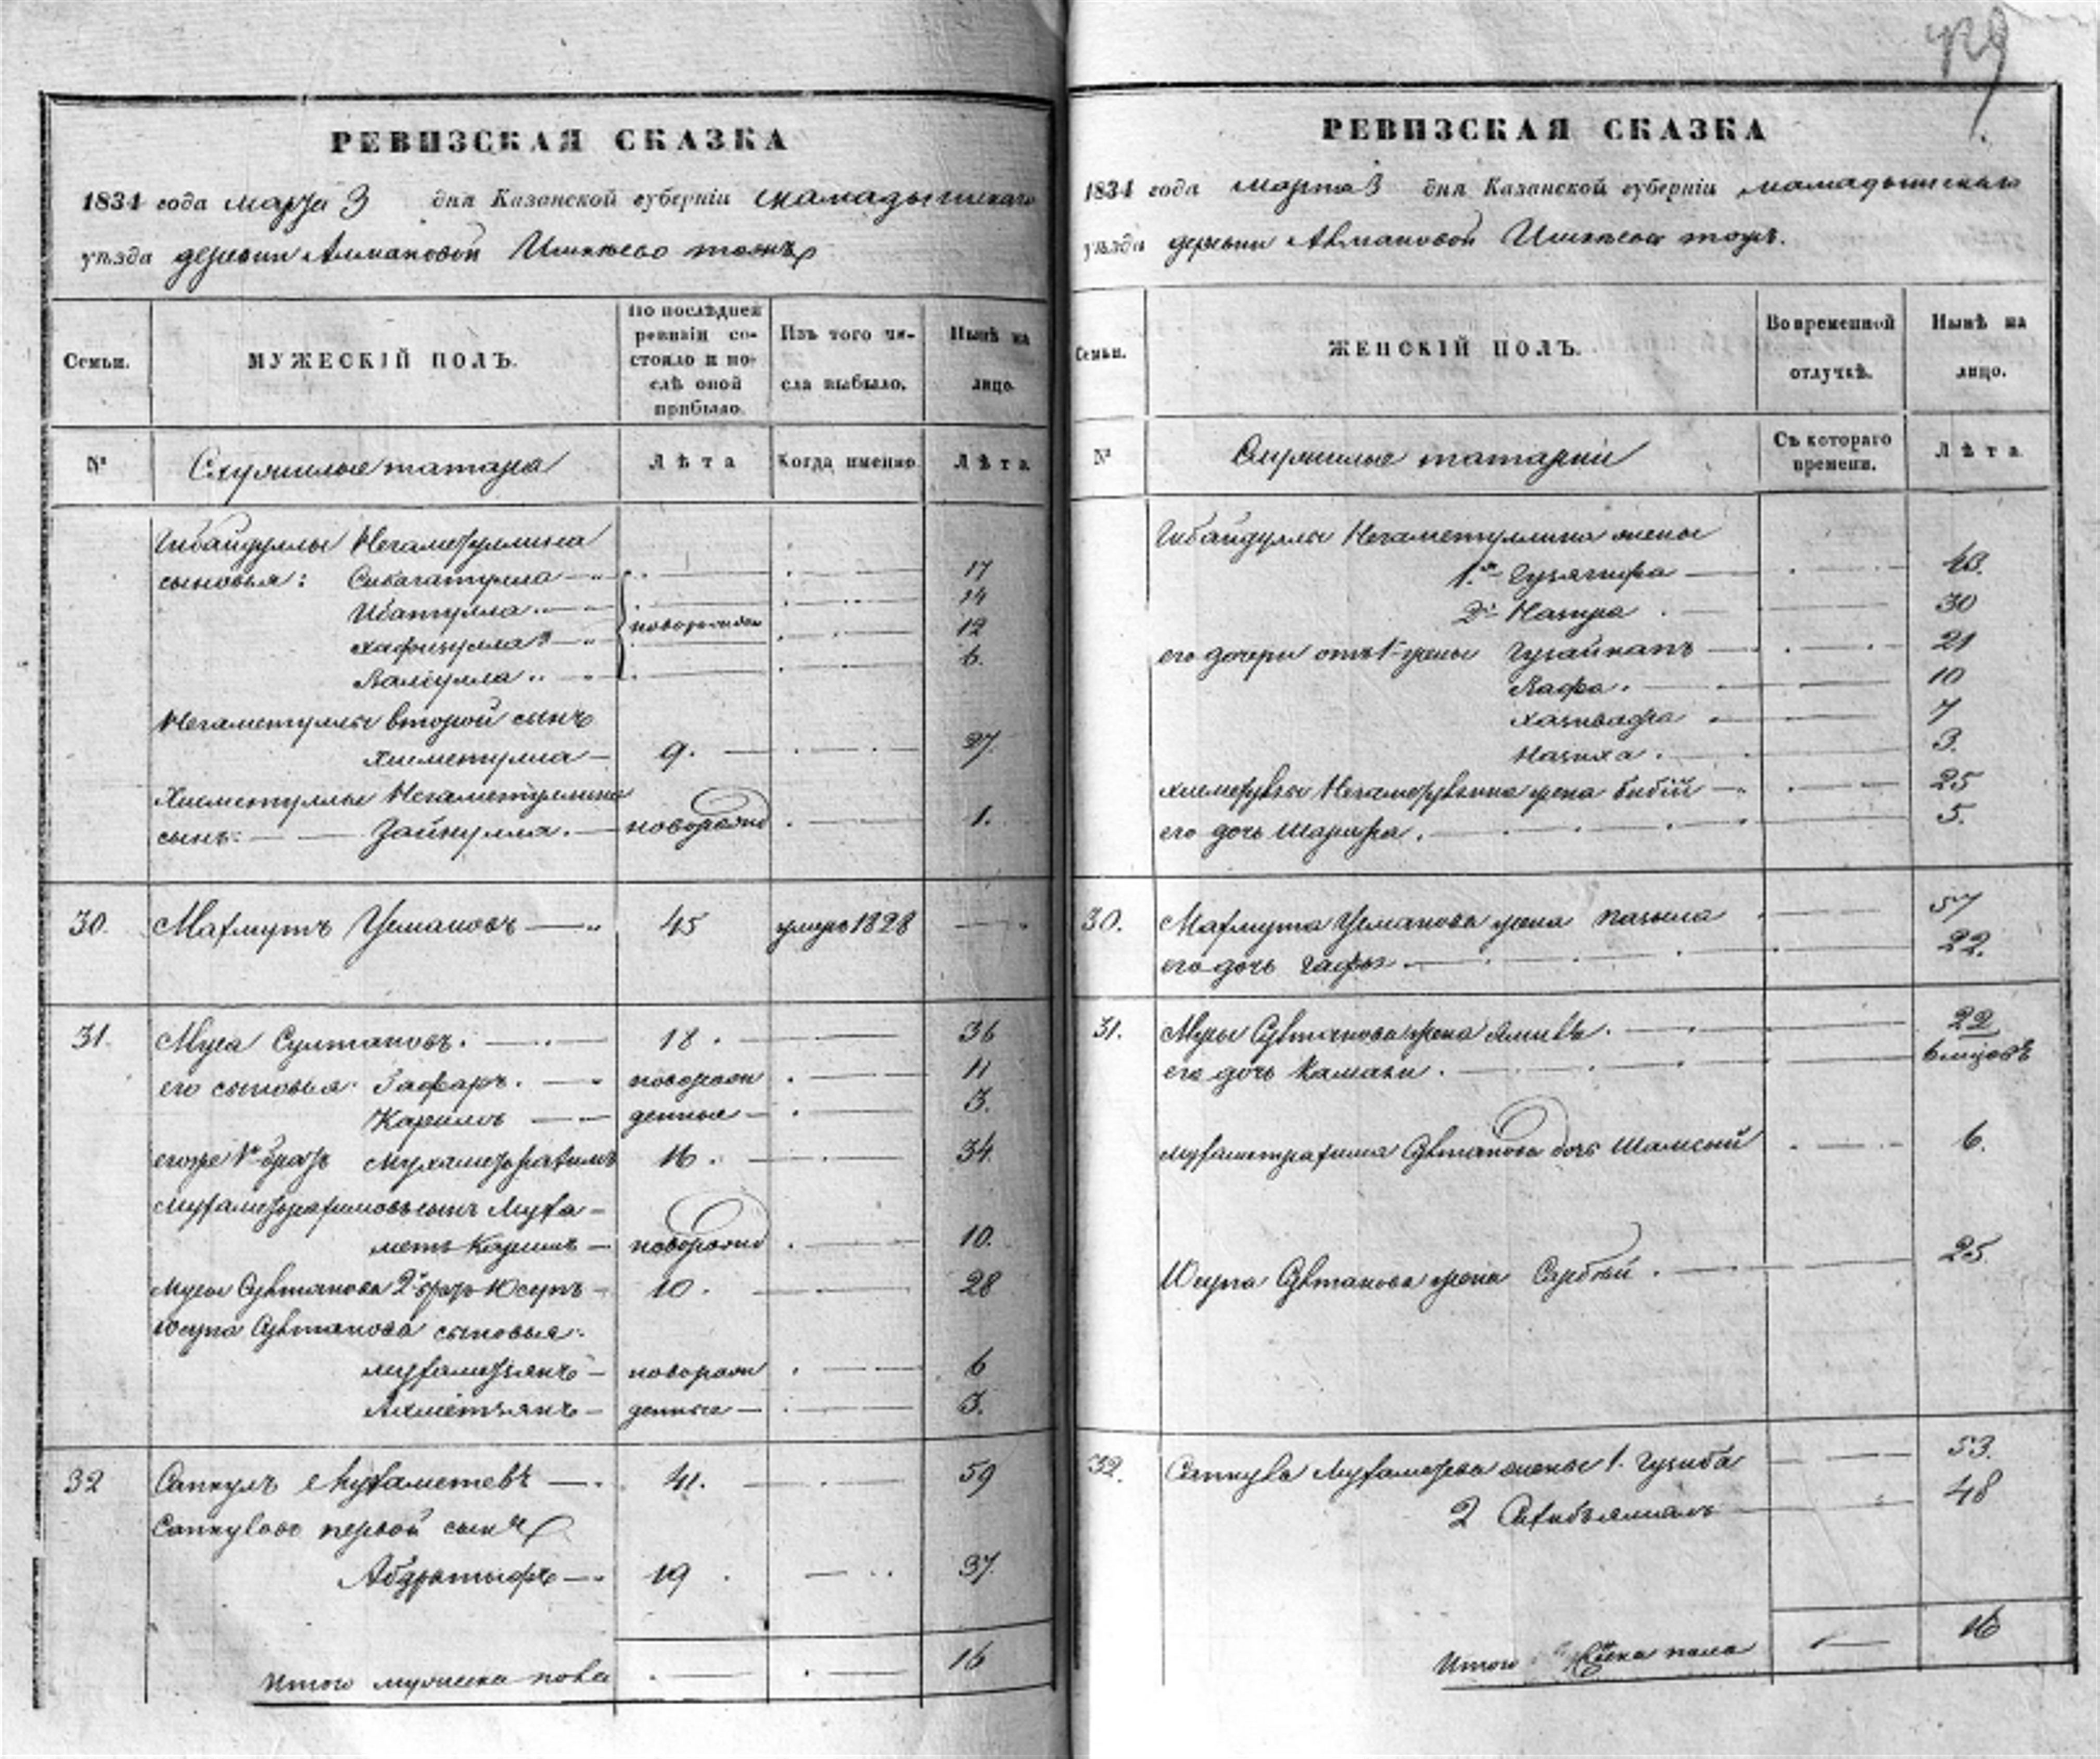 РЕВИЗСКАЯ СКАЗКА
1834 года марта 3 дня Казанской губерніи мамадышскаго
уѣзда деревни Алмаковой Ишкѣево тожъ
Семьи.
МУЖЕСКІЙ ПОЛЪ.
По послѣдней
ревизіи со-
стояло и по-
слѣ оной
прибыло.
Изъ того чи-
сла выбыло.
Нынѣ на
лицо.
№ Служилые татара Лѣта Когда именно Лѣта
Гибайдуллы Негаметуллина
сыновья: Сибагатулла 17
Ибатулла 14
новорожден
Хафизулла 12
Валіулла 6.
Негаметуллы второй сынъ
Хисметулла 9. 27.
Хисметуллы Негаметуллина
сынъ: Зайнулла. новорожд 1.
30. Махмутъ Усмановъ 45 умеръ 1828
31. Муса Султановъ. 18. 36
его сыновья Зафаръ. новорож 11
Каримъ денные 3.
егоже 1й братъ Мухаметърахимъ 16. 34
Мухаметърахимовъ сынъ Муха-
метъ Каримъ новорожд 10.
Мусы Султанова 2й братъ Юсупъ 10. 28
Юсупа Султанова сыновья:
Мухаметзянъ новорож 6
Ахметзянъ денные 3.
32 Сапкулъ Мухаметевъ 41. 59
Сапкулов первой сынъ
Абдратыфъ 19 37.
Итого мужеска пола 16
РЕВИЗСКАЯ СКАЗКА
1834 года марта 3 дня Казанской губерніи мамадышскаго
уѣзда деревни Алмаковой Ишкѣево тожъ.
Семьи.
ЖЕНСКІЙ ПОЛЪ.
Во временной
отлучкѣ.
Нынѣ на
лицо.
№ Служилые татарки
Съ котораго
времени.
Лѣта
Гибайдуллы Негаметуллина жены
1.я Гузягифа 43.
2я Назира 30
его дочери отъ 1й жены Гугайнапъ 21
Вафа. 10
Хазивафа 7
Назиха. 3.
Хисметуллы Негаметуллина жена Бибій 25
его дочь Шарифа. 5.
30. Махмута Усманова жена 57
его дочь Гафы 22.
31. Мусы Султанова жена 22
его дочь Камази. 6 мѣсяцовъ
Мухаметрахима Султанова дочь Шамсый 6.
Юсупа Султанова жена Сарбій. 25.
32. Сапкула Мухаметева жены 1. Гузиба 53.
2 48
Итого женска пола 16